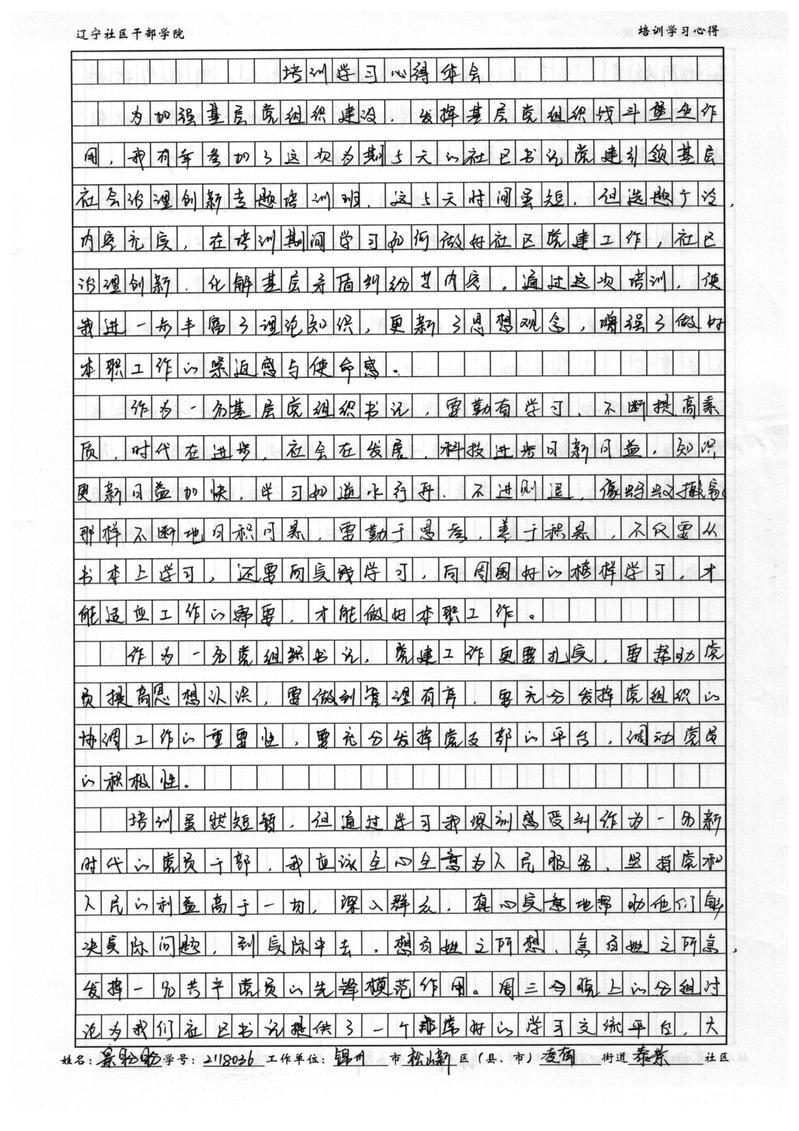 辽宁社区干部学院 培训学习心得
培训学习心得体会
为加强基层党组织建设，发挥基层党组织战斗堡垒作
用，我有幸参加了这次为期5天的社区书记党建引领基层
社会治理创新专题培训班，这5天时间虽短，但选题广泛，
内容充实，在培训期间学习如何做好社区党建工作，社区
治理创新，化解基层矛盾纠纷等内容。通过这次培训，使
我进一步丰富了理论知识，更新了思想观念，增强了做好
本职工作的紧迫感与使命感。
作为一名基层党组织书记，要勤奋学习，不断提高素
质，时代在进步，社会在发展，科技进步日新月益，知识
更新日益加快，学习如逆水行舟，不进则退，像
那样不断地日积月累，要勤于思考，善于积累，不仅要从
书本上学习，还要向实践学习，向周围好的榜样学习，才
能适应工作的需要，才能做好本职工作。
作为一名党组织书记，党建工作更要扎实，要帮助党
员提高思想认识，要做到管理有序，要充分发挥党组织的
协调工作的重要性，要充分发挥党支部的平台，调动党员
的积极性。
培训虽然短暂，但通过学习我深刻感受到作为一名新
时代的党员干部，我应该全心全意为人民服务，坚持党和
人民的利益高于一切，深入群众，真心实意地帮助他们解
决实际问题，到实际中去，想百姓之所想，急百姓之所急，
发挥一名共产党员的先锋模范作用。周三晚上的分组讨
论为我们社区书记提供了一个非常好的学习交流平台，大
姓名： 学号：2118036 工作单位：锦州 市 松山新 区（县、市） 凌南 街道 社区